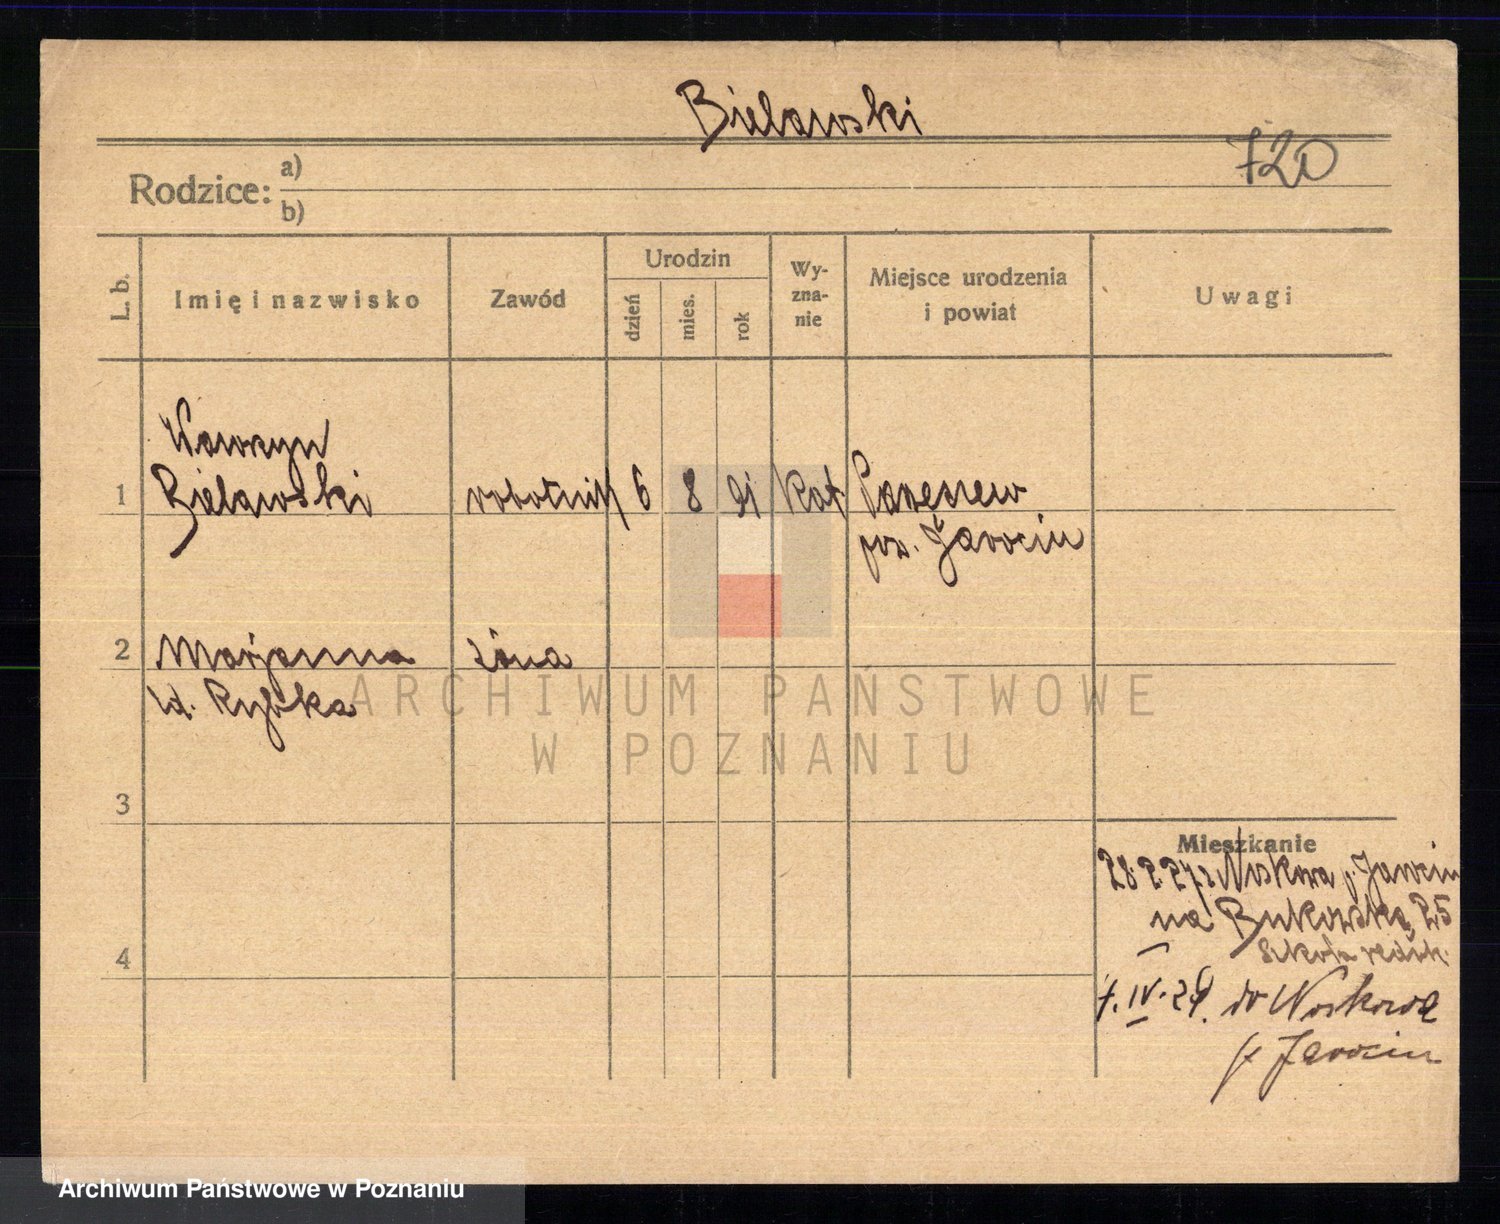 Bielawski
720
Rodzice: a)
b)
L. b.
Imię i nazwisko
Zawód
Urodzin
dzień
mies.
rok
Wy-
zna-
nie
Miejsce urodzenia
i powiat
Uwagi
Wawrzyn
1 Bielawski robotnik 6 8 91 kat
pow. Jarocin
2 Marjanna żona
Rybka
ARCHIWUM PAŃSTWOWE
W POZNANIU
3
Mieszkanie
28.2.27 z Noskowa p. Jarocin
na Bukowską 25
4
Szkoła
IV. do Noskowa
p. Jarocin
Archiwum Państwowe w Poznaniu